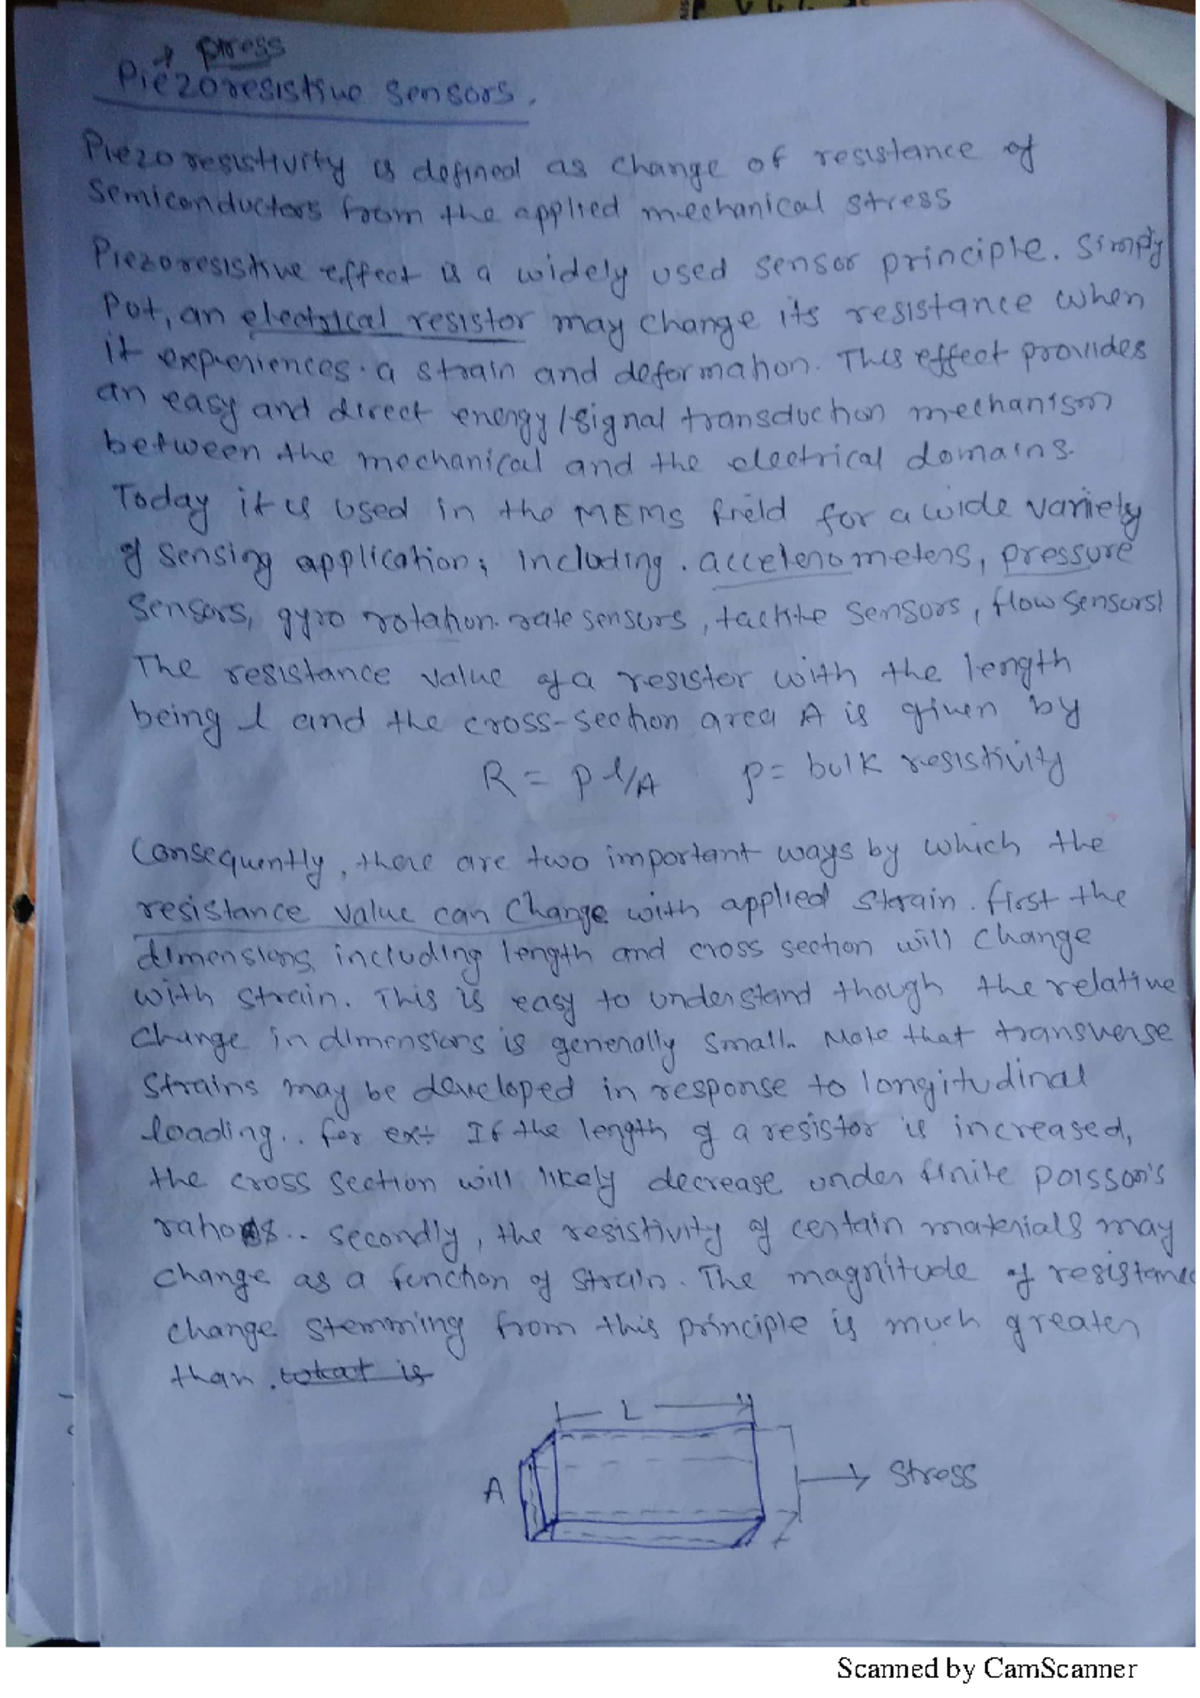 press
Piezoresistive sensors.
Piezoresistivity is defined as change of resistance of
semiconductors from the applied mechanical stress
Piezoresistive effect is a widely used sensor principle. Simply
Pot, an electrical resistor may change its resistance when
it experiences a strain and deformation. This effect provides
an easy and direct energy/signal transduction mechanism
between the mechanical and the electrical domains.
Today it is used in the MEMS field for a wide variety
of sensing application; including. accelerometers, pressure
sensors, gyro rotation rate sensors, tactile sensors, flow sensors
The resistance value of a resistor with the length
being l and the cross-section area A is given by
R = ρ l/A ρ = bulk resistivity
Consequently, there are two important ways by which the
resistance value can change with applied strain. first the
dimensions including length and cross section will change
with strain. This is easy to understand though the relative
change in dimensions is generally small. Note that transverse
strains may be developed in response to longitudinal
loading.. for ex:- If the length of a resistor is increased,
the cross section will likely decrease under finite poisson's
ratios.. secondly, the resistivity of certain materials may
change as a function of strain. The magnitude of resistance
change stemming from this principle is much greater
than. what is
L
A
stress
Z
Scanned by CamScanner